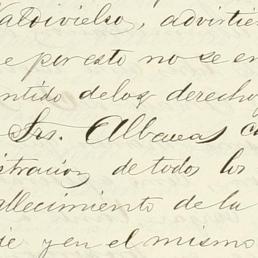 Valdivielso, advirtié
e por esto no se en
ntido de los derecho
Srs. Albaceas c
istración de todos los
allecimiento de la
ie y en el mismo